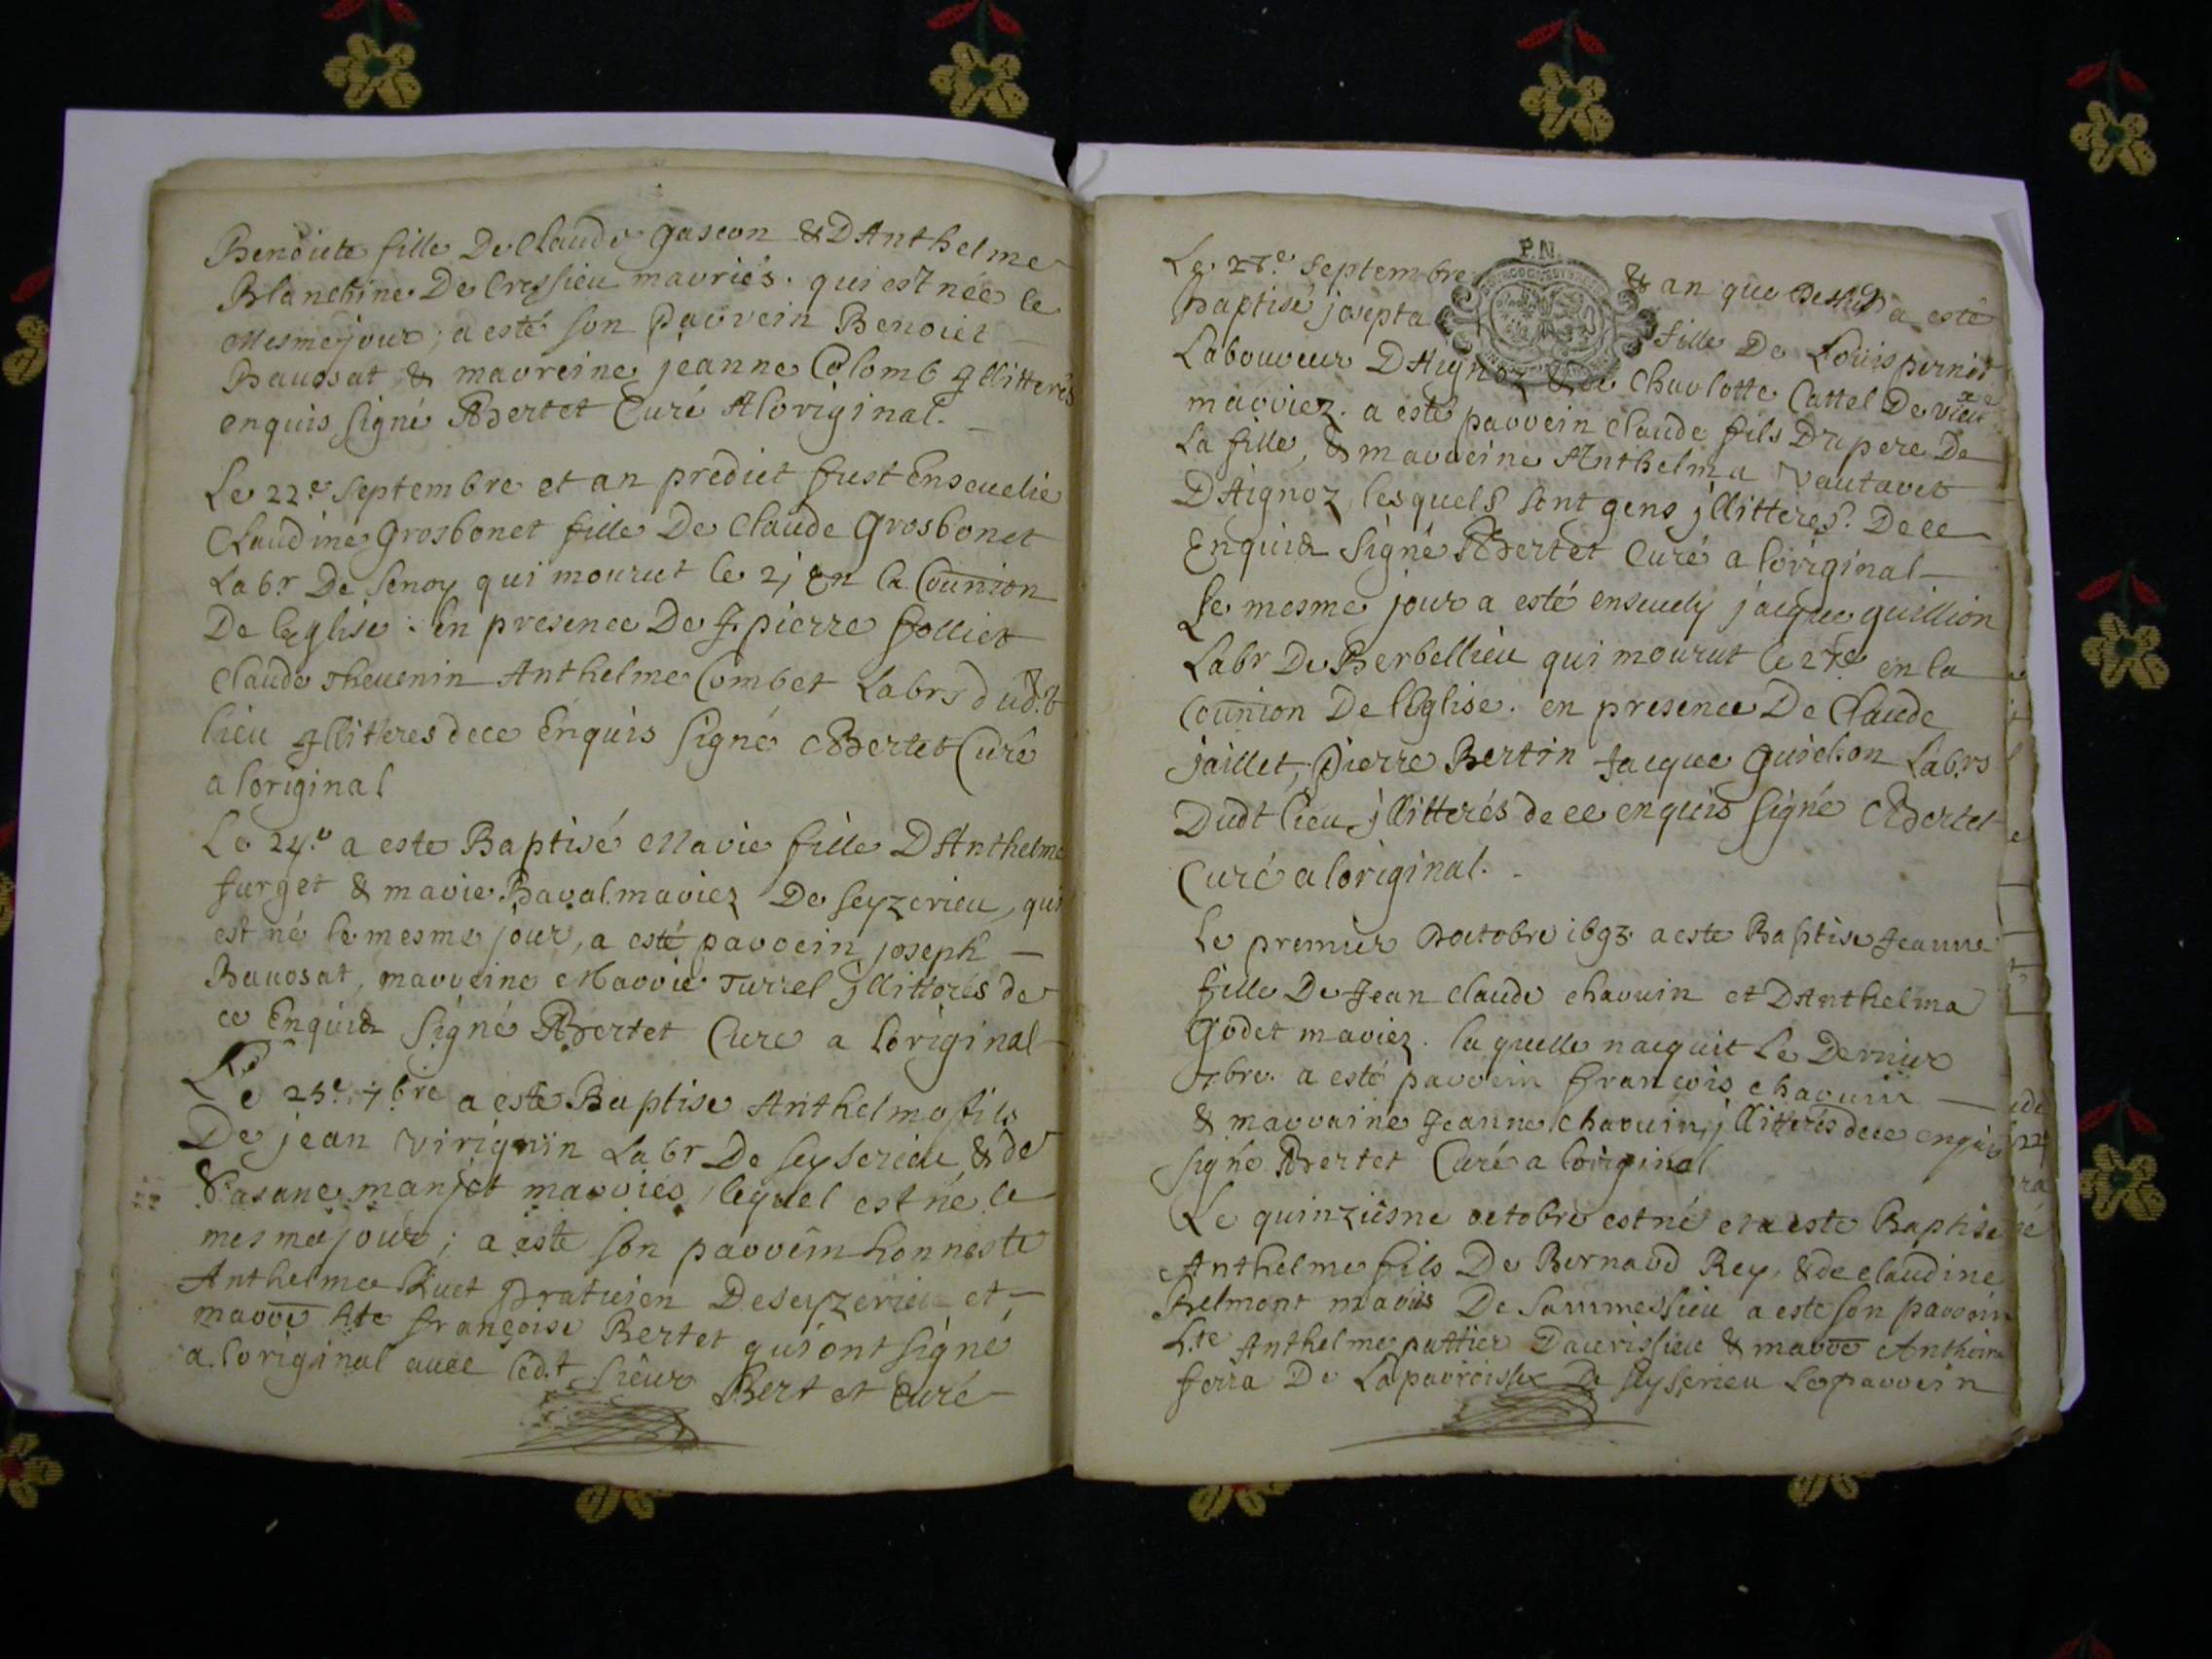 Benoite fille De Claude gascon & DAnthelme
Blanchine De Cressieu mavriés. qui est née le
Mesme jour; a esté son Parvein Benoict
Baussat & mavreine jeanne Colomb jllitterés
enquis signé Bertet Curé Aloriginal.
Le 22e septembre et an predict fust Enseuelie
Claudine Grosbonet fille De Claude Grosbonet
Labr. De Senoy qui mourut le 21 En la Counion
De leglise. en presence De J. pierre folliet
Claude Theuenin Anthelme Combet Labrs dud.t
lieu jllitères dece Enquis signé Bertet Curé
a loriginal
Le 24e a este Baptisé Marie fille DAnthelme
surget & marie Baral mariez De seyzerieu, qui
est né le mesme jour, a esté parvein joseph
Bauosat, marveine Marvie Turrel jllitterés de
ce Enquis signé Bertet Cure a loriginal
Le 25e 7bre a este Baptise Anthelme fils
De jean virignin Labr De seyserieu & de
Susane manjot marviés, lequel est né le
mesme jour; a este son parvein honneste
Anthelme Ruet Praticien Deseyzerieu et
marve hte françoise Bertet qui ont signé
a. loriginal avec led.t sieur Bertet curé
P.N.
Le 27e septembre & an que dessus a esté
Baptisé josepta fille De Loüis pernet
Laboureur DAignoz & de Charlotte Cattel De vieu
marviez. a esté parvein Claude fils Du pere De
La fille, & marveine Anthelma Vautaret
DAignoz lesquels sont gens jllitterés. De ce
Enquis signé Bertet Curé a loriginal
Le mesme jour a esté enseuely jacque guillion
Labr De Berbellieu qui mourut le 27e en la
Counion De lEglise. en presence De Claude
jaillet, Pierre Bertin Jacque Guichon Labrs
Dudt lieu jllitterés de ce enquis signé Bertet
Curé a loriginal.
Le premier Doctobre 1693. a este Baptise Jeanne
fille De Jean Claude charuin et DAnthelma
Godet mariez. la quelle nacquit Le Dernier
7bre. a esté parvein françois charuin
& marvaine Jeanne charuin, jllitterés dece enquis
signé Bertet Curé a loriginal
Le quinziesme octobre est né et a este Baptise
Anthelme fils De Bernard Rey, & de claudine
Belmont mariés De Sammessieu a este son parvein
h.te Anthelme puttier Daurissieu & marve Anthoine
ferra De La parroisse De seyserieu Leparvein